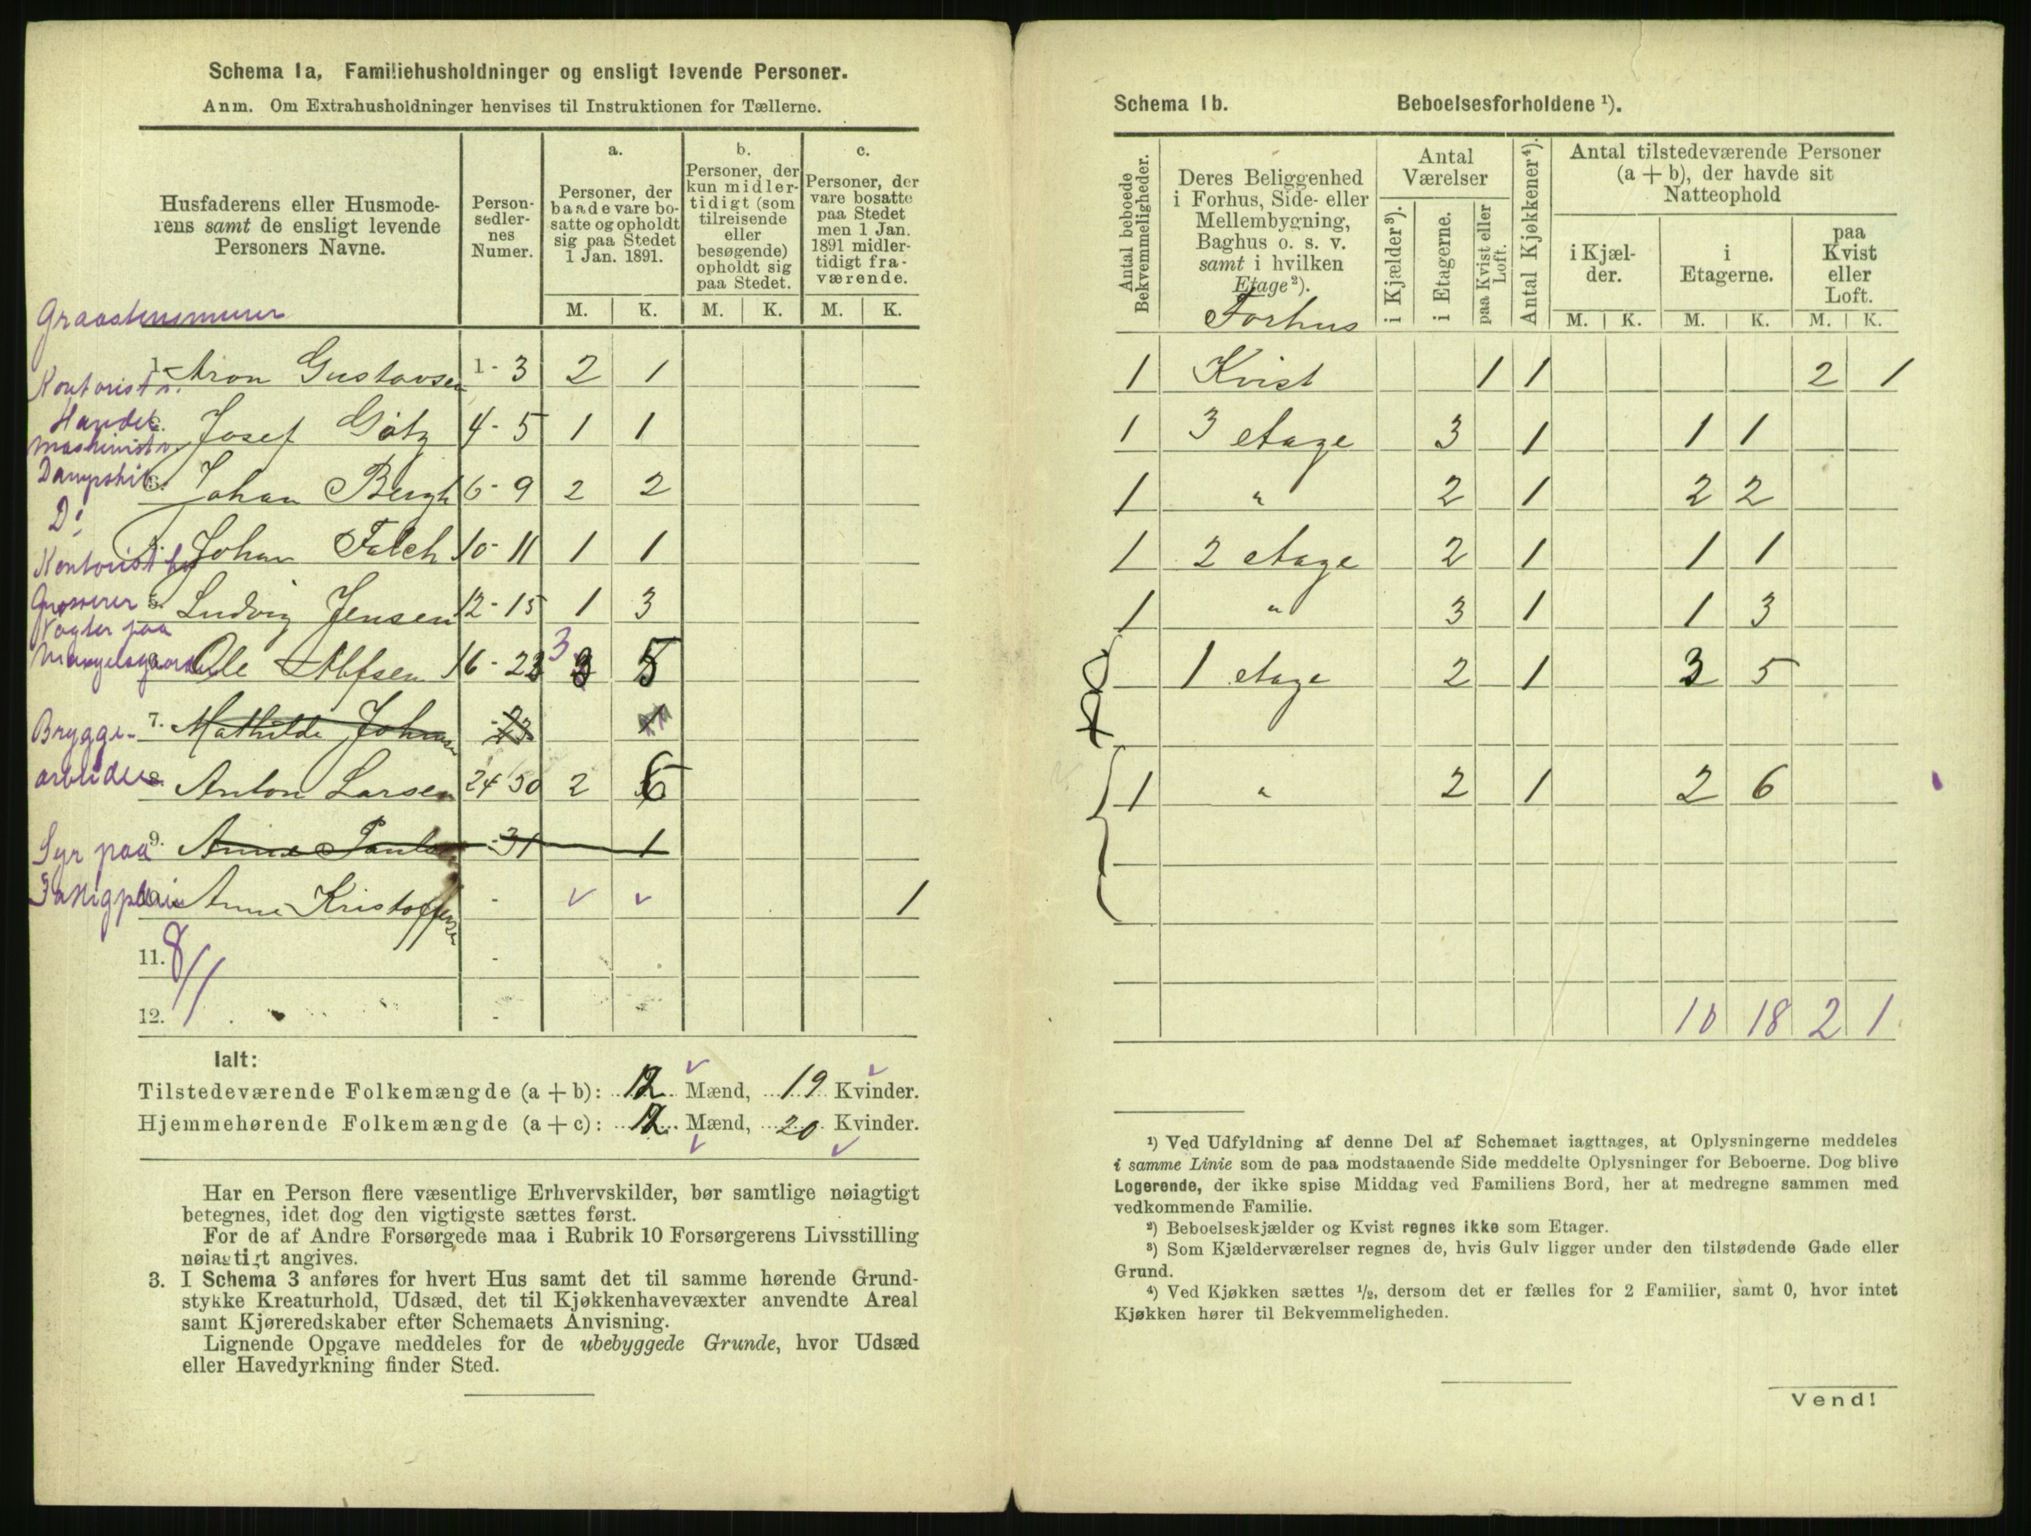 Schema 1a, Familiehusholdninger og ensligt levende Personer.
Anm. Om Extrahusholdninger henvises til Instruktionen for Tællerne.
Husfaderens eller Husmoderens samt de ensligt levende Personers Navne.
Personsedlernes Numer.
a. Personer, der baade vare bosatte og opholdt sig paa Stedet 1 Jan. 1891.
b. Personer, der kun midlertidigt (som tilreisende eller besøgende) opholdt sig paa Stedet.
c. Personer, der vare bosatte paa Stedet men 1 Jan. 1891 midlertidigt fraværende.
M. K. M. K. M. K.
1. Aron Gustavsen 1-3 2 1
Kontorist v.
Handel
2. Josef Götz 4-5 1 1
Maskinist v.
Dampskib
3. Johan Bergh 6-9 2 2
Do
4. Johan Falch 10-11 1 1
Kontorist
Grosserer
5. Ludvig Jensen 12-15 1 3
Vogter paa
6. Ole Alfsen 16-23 3 5
7. Mathilde Johansen 23 1
Brygge-
arbeider
8. Anton Larsen 24 30 2 6
9. Anne Paulsen - 31 1
Syr paa
10. Anne Kristoffersen - 1
11. -
8/1
12. -
Ialt:
Tilstedeværende Folkemængde (a + b): 12 Mænd, 19 Kvinder.
Hjemmehørende Folkemængde (a + c): 12 Mænd, 20 Kvinder.
Har en Person flere væsentlige Erhvervskilder, bør samtlige nøiagtigt
betegnes, idet dog den vigtigste sættes først.
For de af Andre Forsørgede maa i Rubrik 10 Forsørgerens Livsstilling
nøiagtigt angives.
3. I Schema 3 anføres for hvert Hus samt det til samme hørende Grund-
stykke Kreaturhold, Udsæd, det til Kjøkkenhavevæxter anvendte Areal
samt Kjøreredskaber efter Schemaets Anvisning.
Lignende Opgave meddeles for de ubebyggede Grunde, hvor Udsæd
eller Havedyrkning finder Sted.
Schema 1b. Beboelsesforholdene ¹).
Antal beboede Bekvemmeligheder.
Deres Beliggenhed i Forhus, Side- eller Mellembygning, Baghus o. s. v. samt i hvilken Etage²).
Forhus
Antal Værelser
i Kjælder³).
i Etagerne.
paa Kvist eller Loft.
Antal Kjøkkener⁴).
Antal tilstedeværende Personer (a + b), der havde sit Natteophold
i Kjælder.
i Etagerne.
paa Kvist eller Loft.
M. K. M. K. M. K.
1 Kvist 1 1 2 1
1 3 etage 3 1 1 1
1 " 2 1 2 2
1 2 etage 2 1 1 1
1 " 3 1 1 3
1 etage 2 1 3 5
1 " 2 1 2 6
10 18 2 1
¹) Ved Udfyldning af denne Del af Schemaet iagttages, at Oplysningerne meddeles
i samme Linie som de paa modstaaende Side meddelte Oplysninger for Beboerne. Dog blive
Logerende, der ikke spise Middag ved Familiens Bord, her at medregne sammen med
vedkommende Familie.
²) Beboelseskjælder og Kvist regnes ikke som Etager.
³) Som Kjælderværelser regnes de, hvis Gulv ligger under den tilstødende Gade eller
Grund.
⁴) Ved Kjøkken sættes ½, dersom det er fælles for 2 Familier, samt 0, hvor intet
Kjøkken hører til Bekvemmeligheden.
Vend!